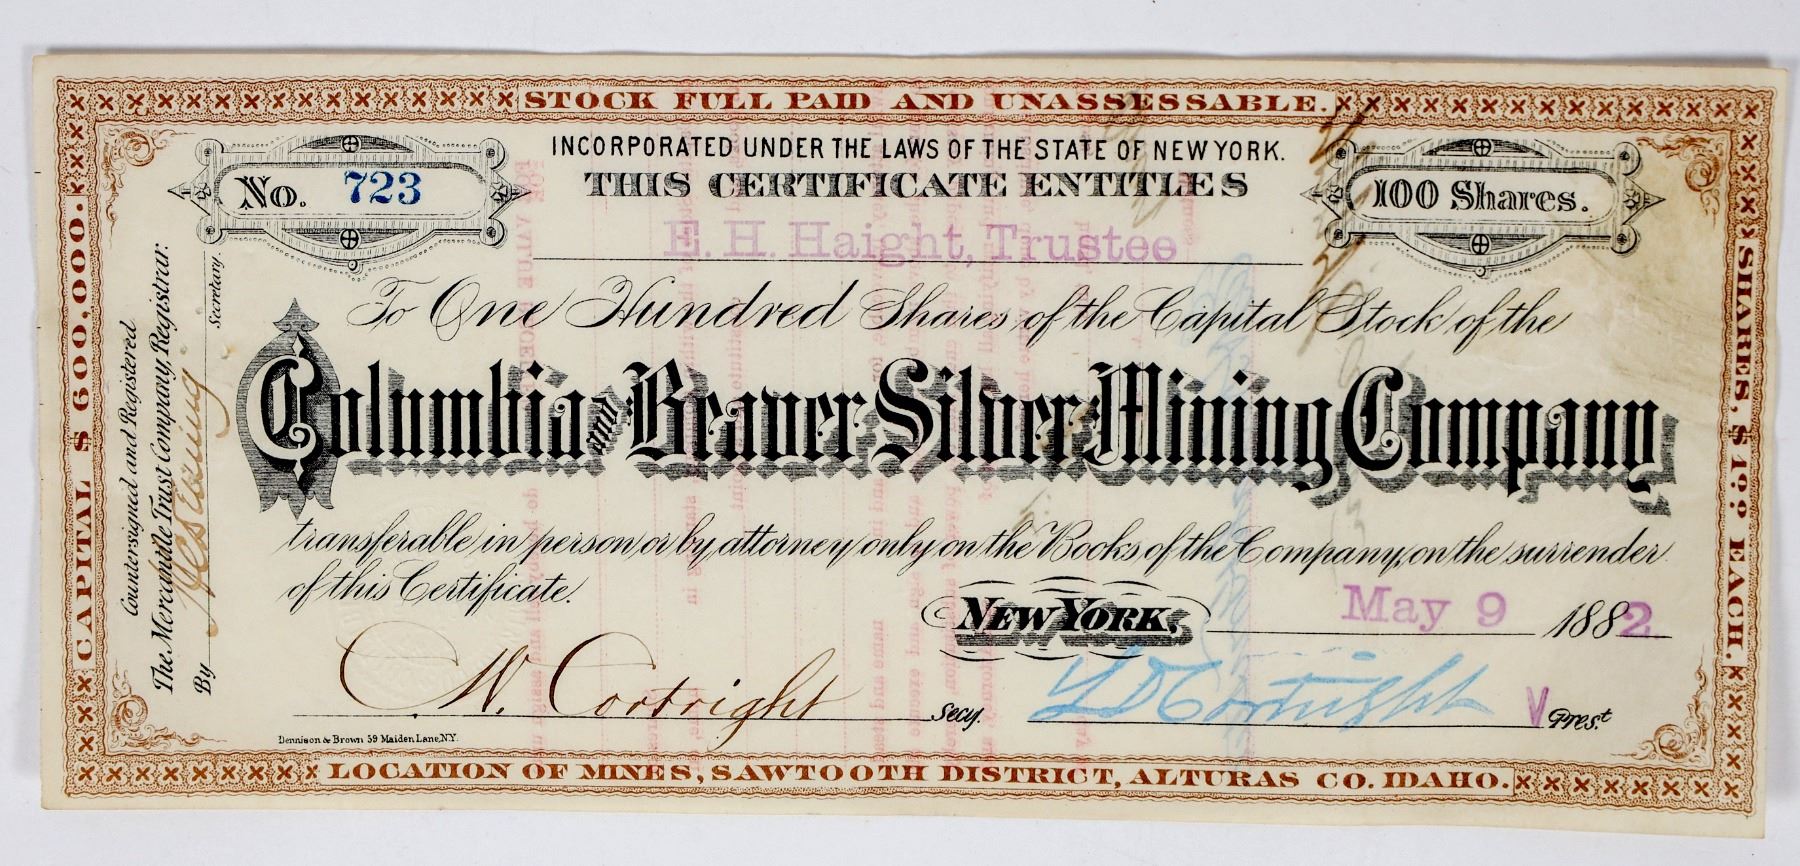 STOCK FULL PAID AND UNASSESSABLE.
INCORPORATED UNDER THE LAWS OF THE STATE OF NEW YORK.
No. 723
THIS CERTIFICATE ENTITLES
100 Shares.
E. H. Haight, Trustee
To One Hundred Shares of the Capital Stock of the
Columbia and Beaver Silver Mining Company
transferable in person or by attorney only on the Books of the Company, on the surrender
of this Certificate.
NEW YORK, May 9 1882
W. Cortright Secy.
L D Cortright V Prest
Dennison & Brown 59 Maiden Lane, N.Y.
LOCATION OF MINES, SAWTOOTH DISTRICT, ALTURAS CO. IDAHO.
CAPITAL $600,000.
Countersigned and Registered
The Mercantile Trust Company, Registrar.
By Secretary.
SHARES, $1.00 EACH.